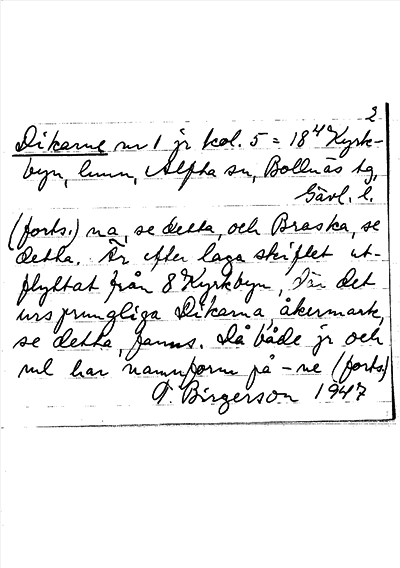 2
Dikarne nr 1 jr kol. 5 = 18⁴ Kyrk-
byn, hmn, Alfta sn, Bollnäs tg,
Gävl. l.
(forts.) na, se detta, och Braska, se
detta. Är efter laga skiftet ut-
flyttat från 8 Kyrkbyn, där det
ursprungliga Dikarna, åkermark,
se detta, fanns. Då både jr och
ml har namnform på -ne (forts.)
Birgerson 1947